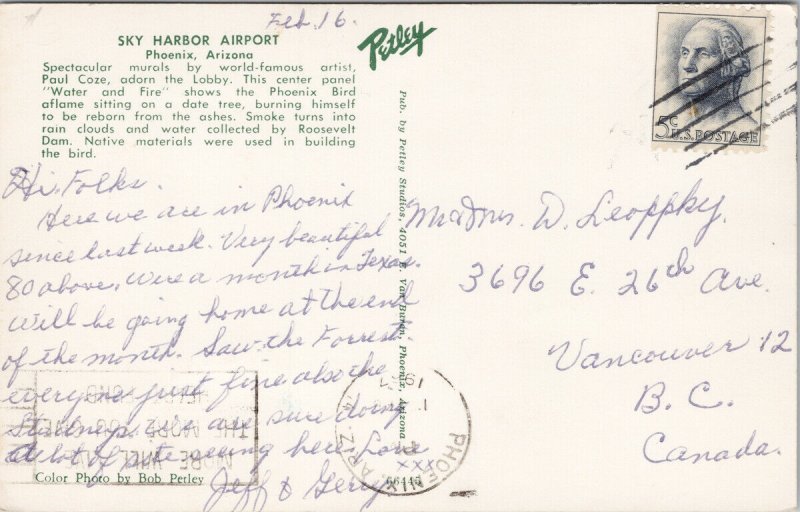 Feb. 16.
SKY HARBOR AIRPORT
Phoenix, Arizona
Spectacular murals by world-famous artist,
Paul Coze, adorn the Lobby. This center panel
"Water and Fire" shows the Phoenix Bird
aflame sitting on a date tree, burning himself
to be reborn from the ashes. Smoke turns into
rain clouds and water collected by Roosevelt
Dam. Native materials were used in building
the bird.
Petley
Pub. by Petley Studios, 4051 E. Van Buren, Phoenix, Arizona
5c
U.S. POSTAGE
Hi Folks.
Here we are in Phoenix
since last week. Very beautiful
80 above. Were a month in Texas.
Will be going home at the end
of the month. Saw the Forrest.
everyone just fine also the
we are sure doing
a lot of seeing here. Love
xxx
Jeff & Gerry
Color Photo by Bob Petley
66446
PHOENIX, ARIZ.
Mr & Mrs. D. Leoppky.
3696 E. 26th Ave.
Vancouver 12
B. C.
Canada.